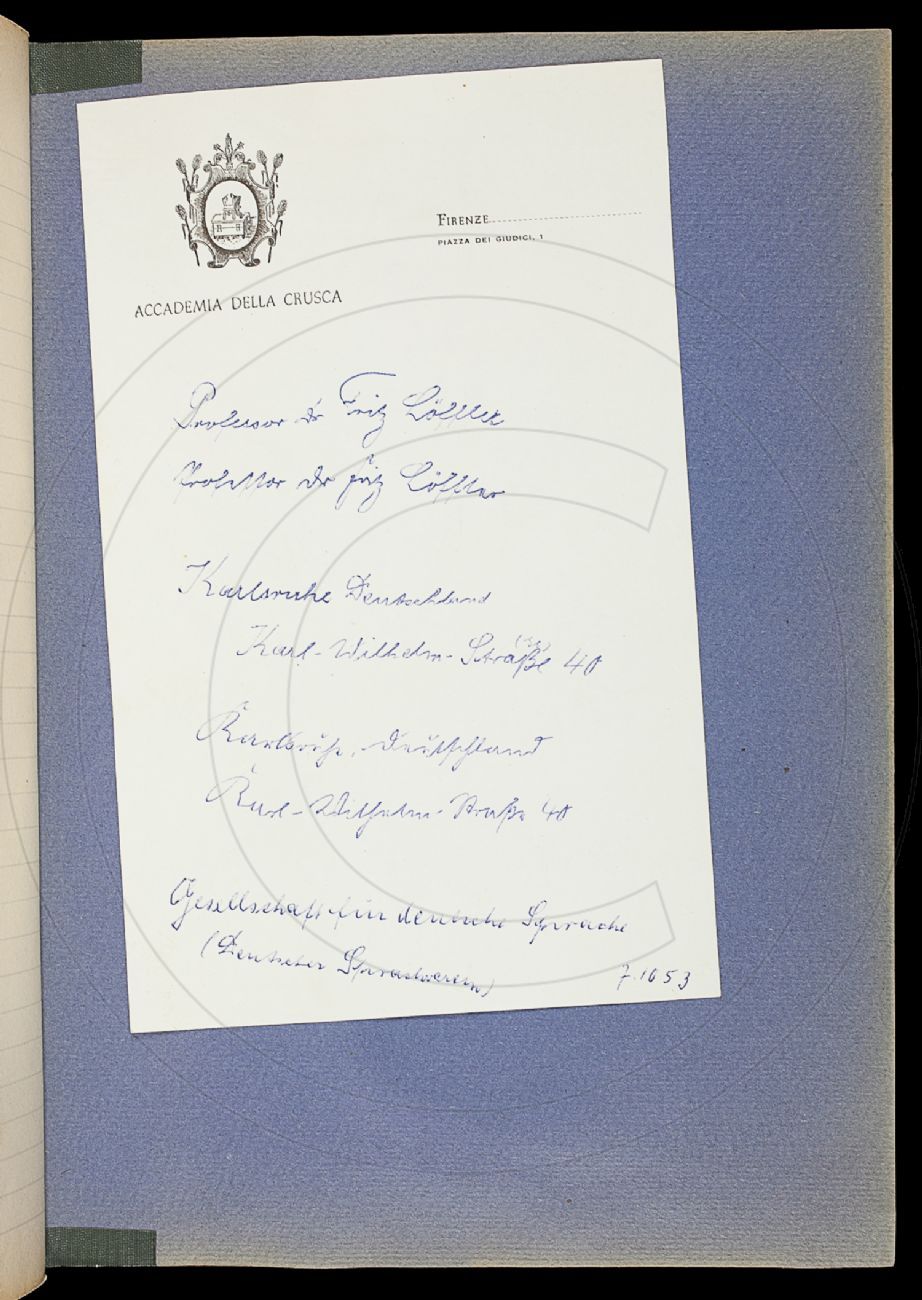 FIRENZE
PIAZZA DEI GIUDICI, 1
ACCADEMIA DELLA CRUSCA
Professor Dr Fritz Löffler
Professor Dr Fritz Löffler
Karlsruhe Deutschland
Karl-Wilhelm-Straße 40
Karlsruhe, Deutschland
Karl-Wilhelm-Straße 40
Gesellschaft für deutsche Sprache
(Deutscher Sprachverein)
7.10 53